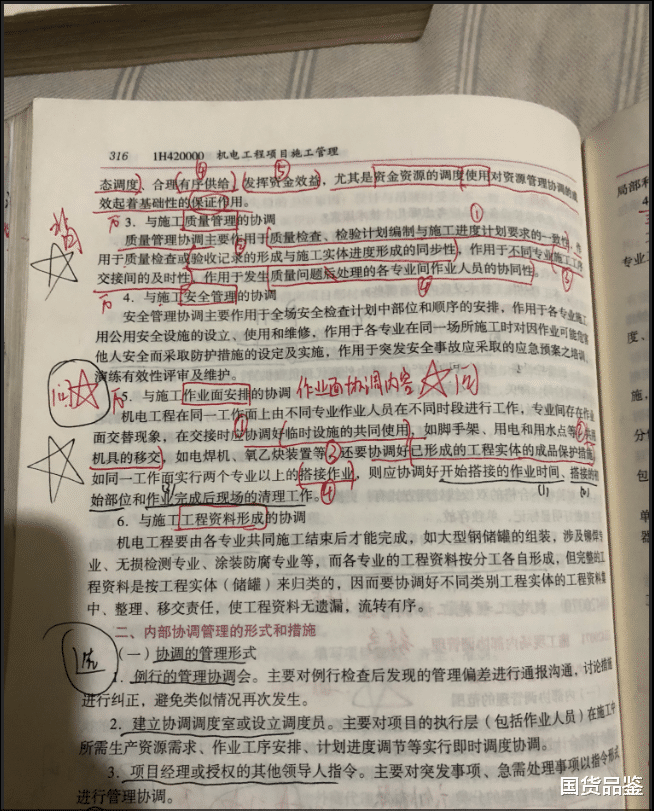 316 1H420000 机电工程项目施工管理
态调度、合理有序供给、发挥资金效益,尤其是资金资源的调度使用对资源管理协调的成
效起着基础性的保证作用。
3. 与施工质量管理的协调
质量管理协调主要作用于质量检查、检验计划编制与施工进度计划要求的一致性,作
用于质量检查或验收记录的形成与施工实体进度形成的同步性,作用于不同专业施工工序
交接间的及时性,作用于发生质量问题后处理的各专业间作业人员的协同性。
4. 与施工安全管理的协调
安全管理协调主要作用于全场安全检查计划中部位和顺序的安排,作用于各专业施工
用公用安全设施的设立、使用和维修,作用于各专业在同一场所施工时对因作业可能危害
他人安全而采取防护措施的设定及实施,作用于突发安全事故应采取的应急预案之培训、
演练有效性评审及维护。
5. 与施工作业面安排的协调 作业面协调内容 问
问
机电工程在同一工作面上由不同专业作业人员在不同时段进行工作,专业间存在作业
面交替现象,在交接时应协调好临时设施的共同使用,如脚手架、用电和用水点等
机具的移交,如电焊机、氧乙炔装置等 还要协调好已形成的工程实体的成品保护措施
如同一工作面实行两个专业以上的搭接作业,则应协调好开始搭接的作业时间、搭接的
始部位和作业完成后现场的清理工作。
6. 与施工工程资料形成的协调
机电工程要由各专业共同施工结束后才能完成,如大型钢储罐的组装,涉及铆焊专
业、无损检测专业、涂装防腐专业等,而各专业的工程资料按分工各自形成,但完整的工
程资料是按工程实体(储罐)来归类的,因而要协调好不同类别工程实体的工程资料集
中、整理、移交责任,使工程资料无遗漏,流转有序。
二、内部协调管理的形式和措施
(一)协调的管理形式
1. 例行的管理协调会。主要对例行检查后发现的管理偏差进行通报沟通,讨论措施
进行纠正,避免类似情况再次发生。
2. 建立协调调度室或设立调度员。主要对项目的执行层(包括作业人员)在施工中
所需生产资源需求、作业工序安排、计划进度调节等实行即时调度协调。
3. 项目经理或授权的其他领导人指令。主要对突发事项、急需处理事项以指令形式
进行管理协调。
国货品鉴